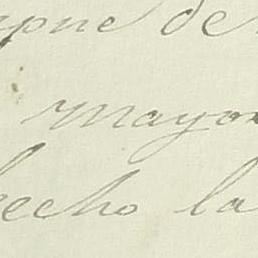 de
mayor
echo la